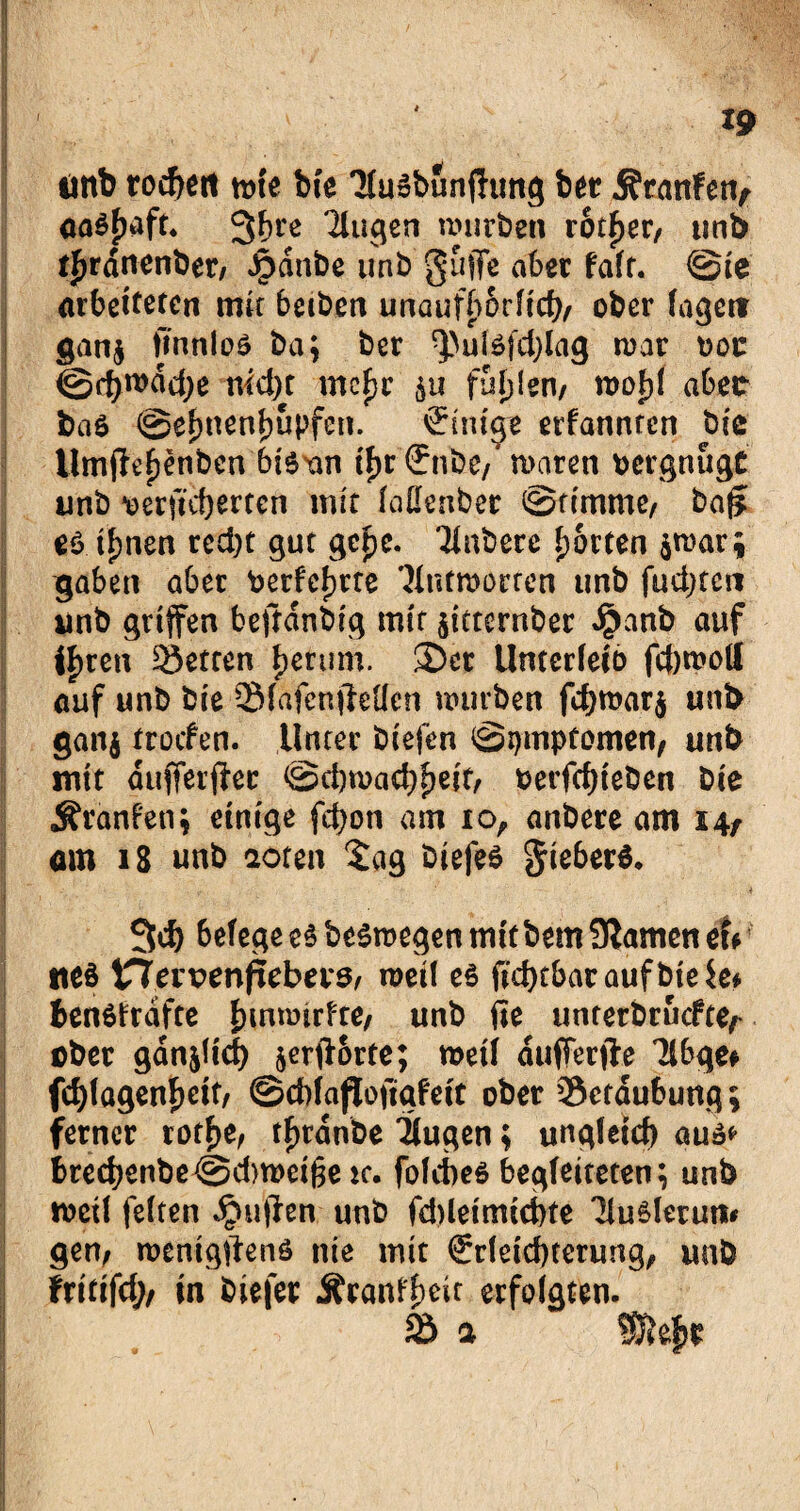 19
und rochen wie die Ausdünstung der Kranken,
aashaft. Ihre Augen wurden röther, und
thränender, Hände und Füsse aber kalt. Sie
arbeiteten mit beiden unaufhörlich, oder lagen
ganz sinnlos da; der Pulsschlag war vor
Schwäche nicht mehr zu fühlen, wohl aber
das Sehnenhüpfen. Einige erkannten die
Umstehenden bis an ihr Ende, waren vergnügt
und versicherten mit lallender Stimme, daß
es ihnen recht gut gehe. Andere hörten zwar;
gaben aber verkehrte Antworten und suchten
und griffen beständig mit zitternder Hand auf
ihren Betten herum. Der Unterleib schwoll
auf und die Blasenstellen wurden schwarz und
ganz trocken. Unter diesen Symptomen, und
mit äusserster Schwachheit, verschieden die
Kranken; einige schon am 10, andere am 14,
am 18 und 20ten Tag dieses Fiebers.
Ich belege es deswegen mit dem Namen ei-
nes Nervenfiebers, weil es sichtbar auf die Le-
benskräfte hinwirkte, und sie unterdrückte,
oder gänzlich zerstörte; weil äusserste Abge-
schlagenheit, Schlaflosigkeit oder Betäubung;
ferner rothe, thrände Augen; ungleich aus-
brechende Schweiße ꝛc. solches begleiteten; und
weil selten Husten und schleimichte Ausleerun-
gen, wenigstens nie mit Erleichterung, und
kritisch, in dieser Krankheit erfolgten.
B 2 Mehr